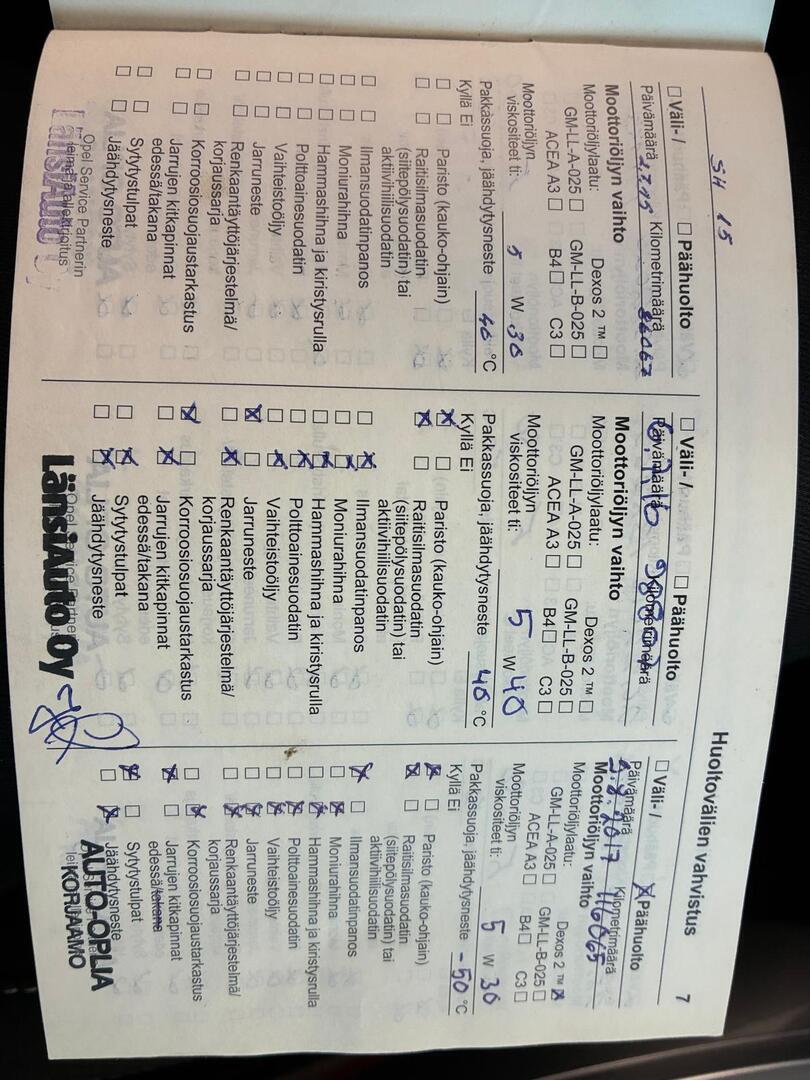 Huoltovälien vahvistus
7
SH 15
☐ Väli- / ☐ Päähuolto
Päivämäärä Kilometrimäärä
2.7.15
Moottoriöljyn vaihto
Moottoriöljylaatu: Dexos 2 ™ ☐
GM-LL-A-025 ☐ GM-LL-B-025 ☐
ACEA A3 ☐ B4 ☐ C3 ☐
Moottoriöljyn
viskositeetti: 5 W 30
Pakkassuoja, jäähdytysneste 40 °C
Kyllä Ei
☐ ☐ Paristo (kauko-ohjain)
☐ ☐ Raitisilmasuodatin
(siitepölysuodatin) tai
aktiivihiilisuodatin
☐ ☐ Ilmansuodatinpanos
☐ ☐ Moniurahihna
☐ ☐ Hammashihna ja kiristysrulla
☐ ☐ Polttoainesuodatin
☐ ☐ Vaihteistoöljy
☐ ☐ Jarruneste
☐ ☐ Renkaantäyttöjärjestelmä/
korjaussarja
☐ ☐ Korroosiosuojaustarkastus
☐ ☐ Jarrujen kitkapinnat
edessä/takana
☐ ☐ Sytytystulpat
☐ ☐ Jäähdytysneste
Opel Service Partnerin
LänsiAuto
☐ Väli- / ☐ Päähuolto
Päivämäärä Kilometrimäärä
Moottoriöljyn vaihto
Moottoriöljylaatu: Dexos 2 ™ ☐
GM-LL-A-025 ☐ GM-LL-B-025 ☐
ACEA A3 ☐ B4 ☐ C3 ☐
Moottoriöljyn
viskositeetti: 5 W 40
Pakkassuoja, jäähdytysneste 40 °C
Kyllä Ei
☒ ☐ Paristo (kauko-ohjain)
☒ ☐ Raitisilmasuodatin
(siitepölysuodatin) tai
aktiivihiilisuodatin
☐ ☒ Ilmansuodatinpanos
☐ ☒ Moniurahihna
☐ ☒ Hammashihna ja kiristysrulla
☐ ☒ Polttoainesuodatin
☐ ☒ Vaihteistoöljy
☒ ☐ Jarruneste
☐ ☒ Renkaantäyttöjärjestelmä/
korjaussarja
☒ ☐ Korroosiosuojaustarkastus
☐ ☒ Jarrujen kitkapinnat
edessä/takana
☐ ☒ Sytytystulpat
☐ ☒ Jäähdytysneste
LänsiAuto Oy
☐ Väli- / ☒ Päähuolto
Päivämäärä Kilometrimäärä
2017 116065
Moottoriöljyn vaihto
Moottoriöljylaatu: Dexos 2 ™ ☒
GM-LL-A-025 ☐ GM-LL-B-025 ☐
ACEA A3 ☐ B4 ☐ C3 ☐
Moottoriöljyn
viskositeetti: 5 W 30
Pakkassuoja, jäähdytysneste -50 °C
Kyllä Ei
☒ ☐ Paristo (kauko-ohjain)
☒ ☐ Raitisilmasuodatin
(siitepölysuodatin) tai
aktiivihiilisuodatin
☒ ☐ Ilmansuodatinpanos
☐ ☒ Moniurahihna
☐ ☒ Hammashihna ja kiristysrulla
☐ ☒ Polttoainesuodatin
☐ ☒ Vaihteistoöljy
☐ ☒ Jarruneste
☐ ☒ Renkaantäyttöjärjestelmä/
korjaussarja
☐ ☒ Korroosiosuojaustarkastus
☒ ☐ Jarrujen kitkapinnat
edessä/takana
☒ ☐ Sytytystulpat
☐ ☒ Jäähdytysneste
AUTO-OPLIA
KORJAAMO